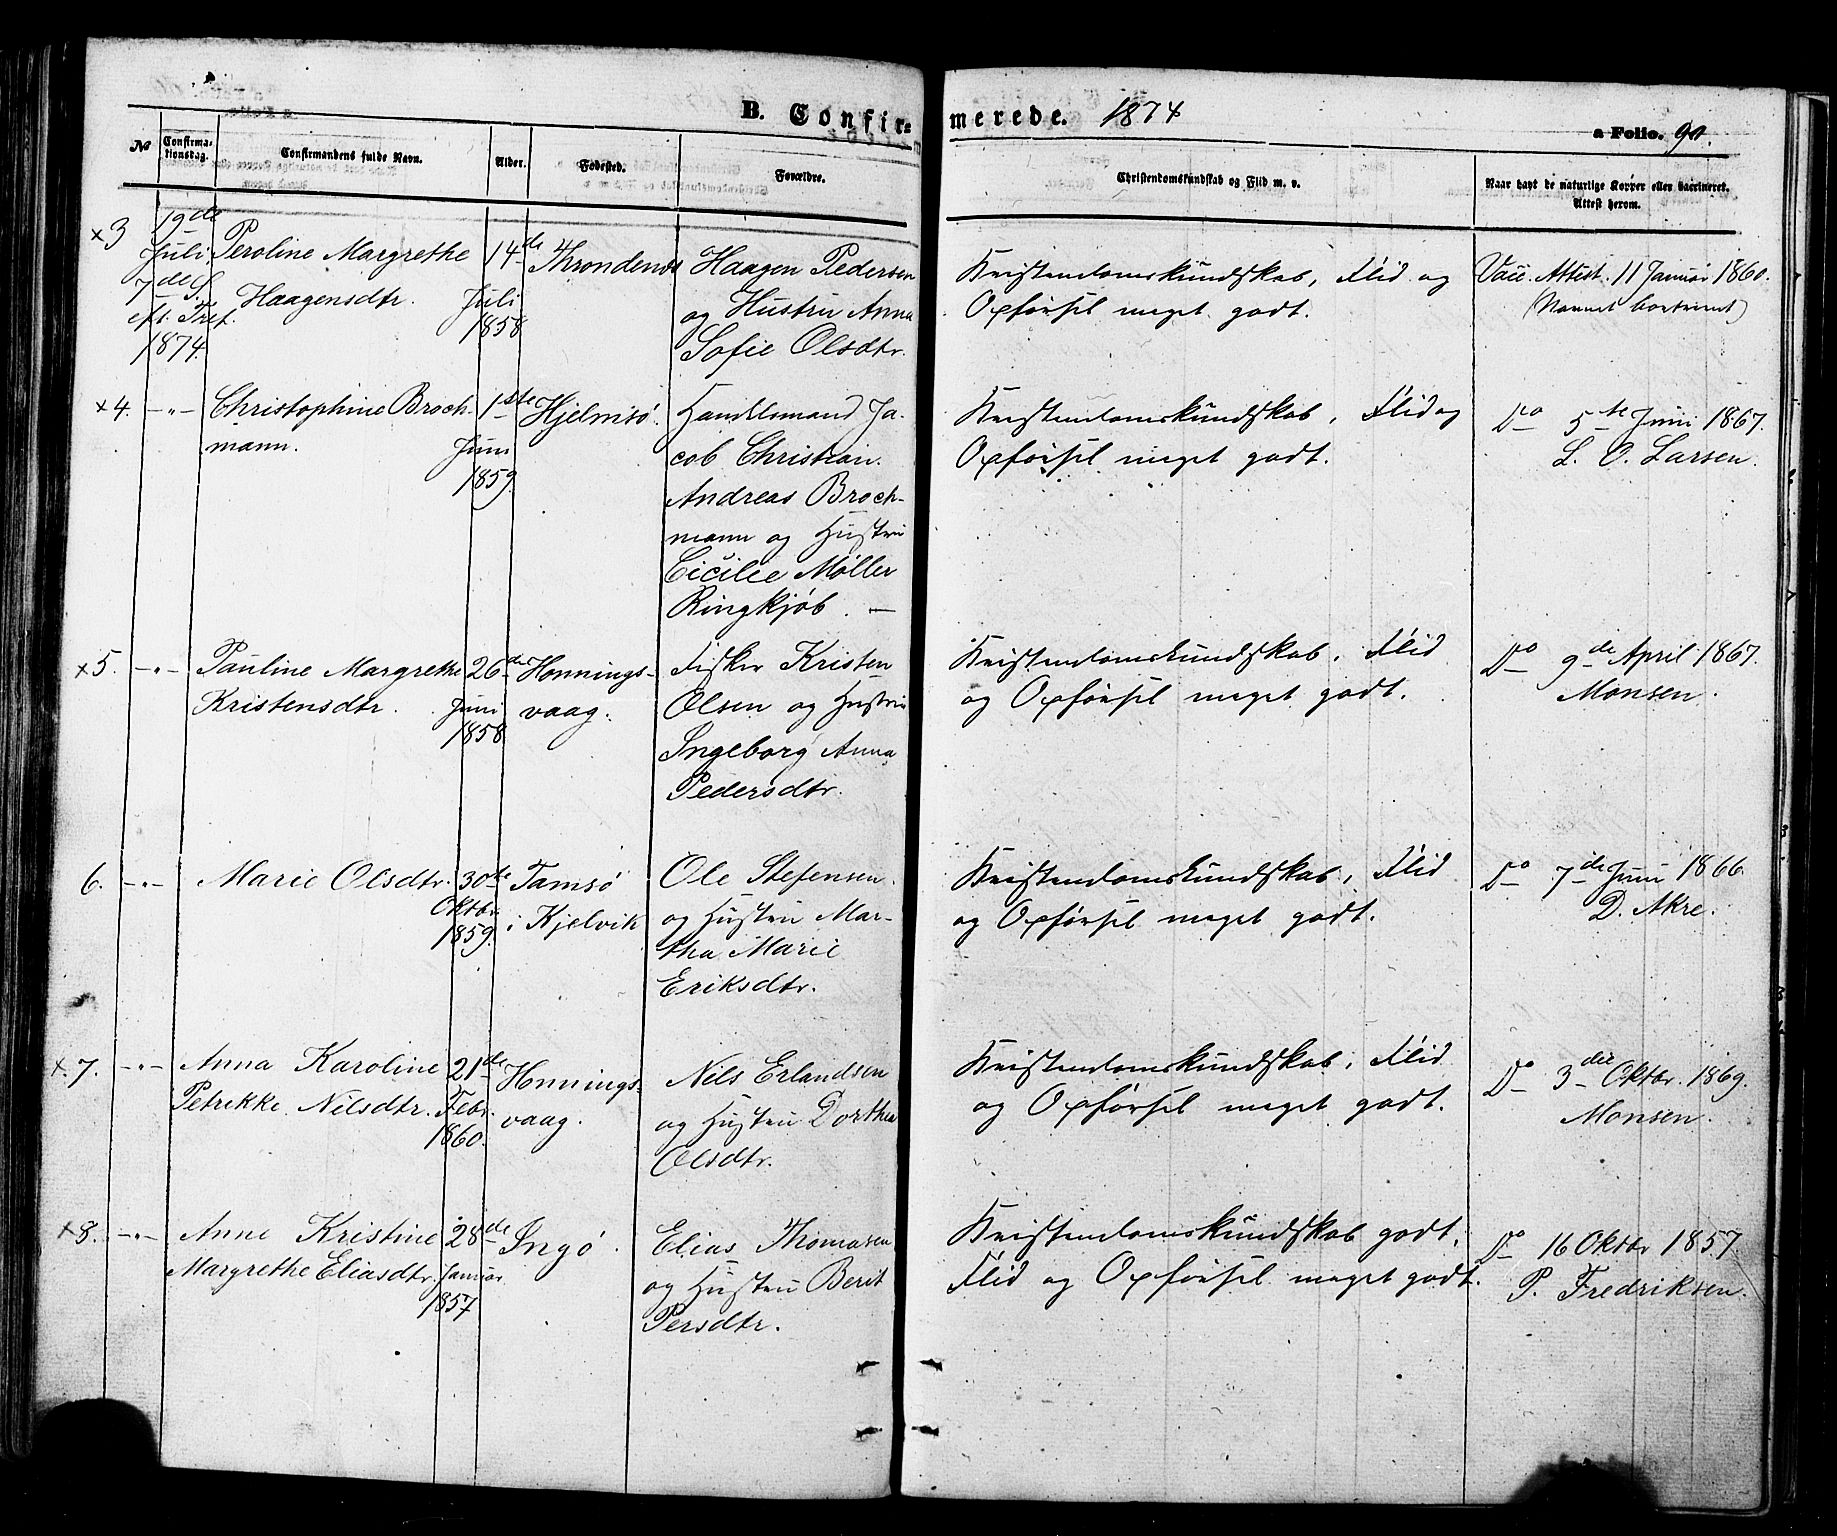 B. Confir= merede. 1874
a Folio. 90.
No Confirma-tionsdag. Confirmandens fulde Navn. Alder. Fødested. Forældre. Christendomskundskab og Flid m. v. Naar havt de naturlige Kopper eller vaccineret. Attest herom.
×3
19de Juli 7de S. eft. Tref. 1874.
Peroline Margrethe
Haagensdtr.
14de
Juli
1858
Throndenæs
Haagen Pedersen
og Hustru Anna
Sofie Olsdtr.
Kristendomskundskab, Flid og
Opførsel meget godt.
Vacc. Attest. 11 Januar 1860.
(Navnet bortrevet)
×4. -„-
Christophine Broch-
mann.
1ste
Juni
1859.
Hjelmsø.
Handelsmand Ja-
cob Christian
Andreas Broch-
mann og Hustru
Cicilie Møller
Ringkjøb. —
Kristendomskundskab, Flid og
Opførsel meget godt.
Do 5te Juni 1867.
L. O. Larsen.
×5. -„-
Pauline Margrethe
Kristensdtr.
26de
Juni
1858
Honnings-
vaag.
Fisker Kristen
Olsen og Hustru
Ingeborg Anna
Pedersdtr.
Kristendomskundskab, Flid
og Opførsel meget godt.
Do 9de April 1867.
Monsen.
6. -„-
Marie Olsdtr.
30de
Oktbr.
1859.
Tamsø
i Kjelvik
Ole Stefensen
og Hustru Mar-
tha Marie
Eriksdtr.
Kristendomskundskab, Flid
og Opførsel meget godt.
Do 7de Juni 1866.
D. Akre.
×7. -„-
Anna Karoline
Petrikke Nilsdtr.
21de
Febr.
1860.
Honnings-
vaag.
Nils Erlandsen
og Hustru Dorthea
Olsdtr.
Kristendomskundskab, Flid
og Opførsel meget godt.
Do 3die Oktbr. 1869.
Monsen.
×8. -„-
Anne Kristine
Margrethe Eliasdtr.
28de
Januar
1857
Ingø.
Elias Thomasen
og Hustru Berit
Persdtr.
Kristendomskundskab godt,
Flid og Opførsel meget godt.
Do 16 Oktbr 1857.
P. Fredriksen.